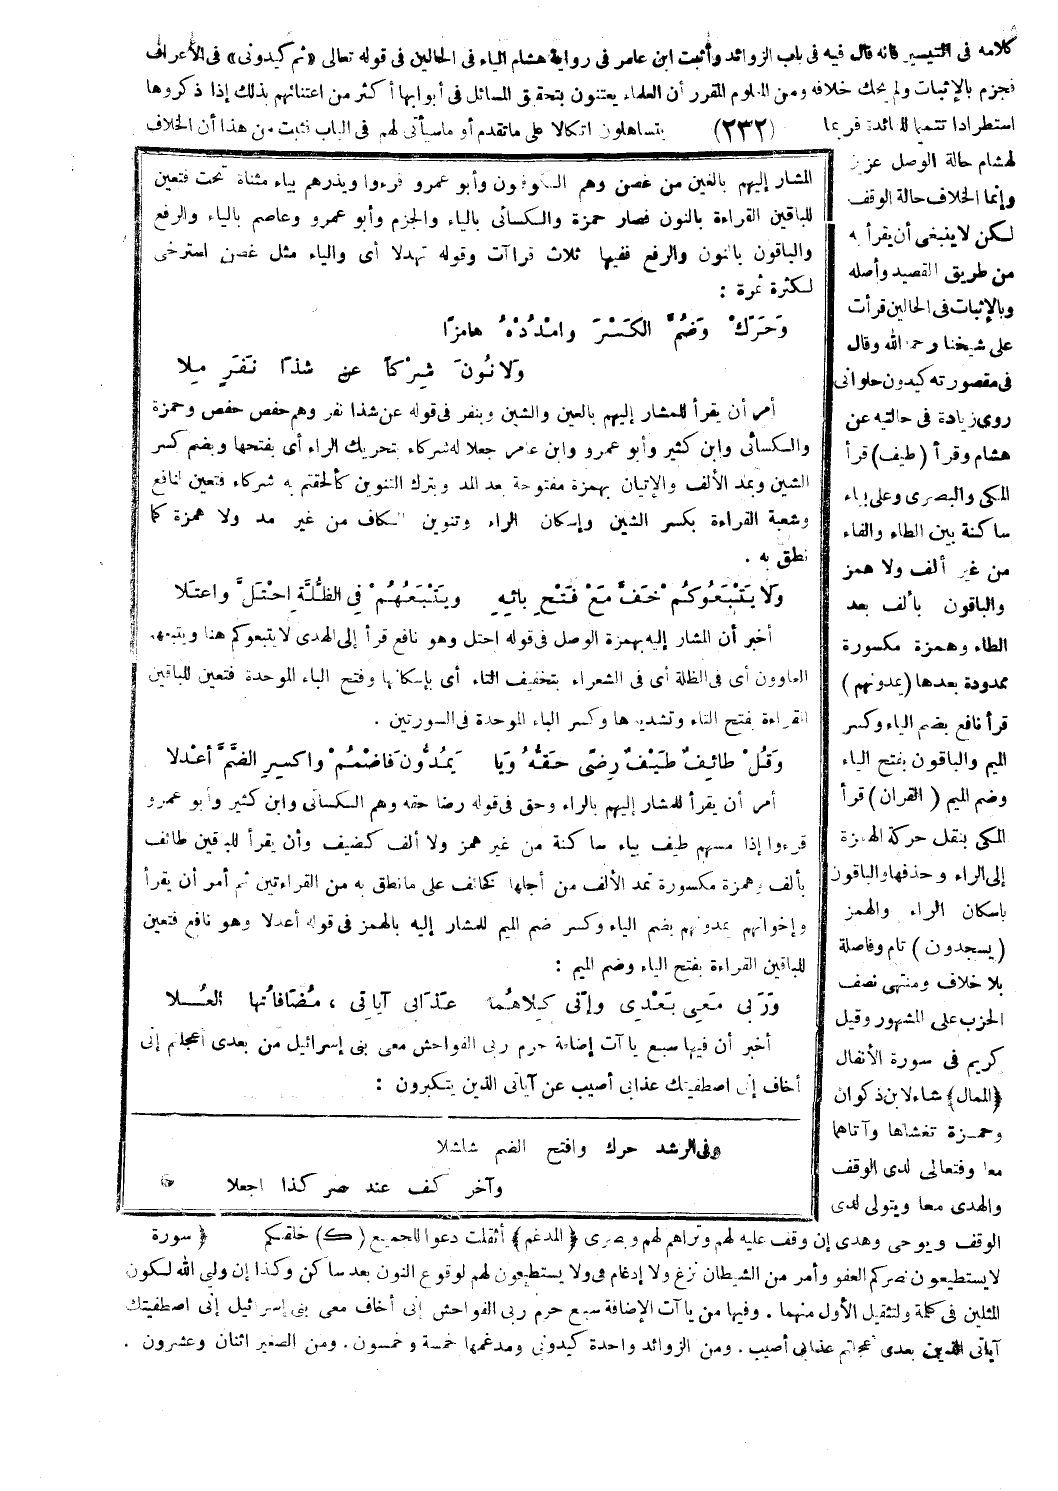 كلامه فى التيسير فانه قال فيه فى باب الزوائد وأثبت ابن عامر فى رواية هشام الياء فى الحالين فى قوله تعالى «ثم كيدونى» فى الأعراف
فجزم بالإثبات ولم يحك خلافه ومن المعلوم المقرر أن العلماء يعتنون بتحقيق المسائل فى أبوابها أكثر من اعتنائهم بذلك إذا ذكروها
استطرادا تتميما للفائدة فربما (٢٣٢) يتساهلون اتكالا على ماتقدم أو ماسيأتى لهم فى الباب فثبت من هذا أن الخلاف
لهشام حالة الوصل عزيز
وإنما الخلاف حالة الوقف
لكن لاينبغى أن يقرأ به
من طريق القصيد وأصله
وبالإثبات فى الحالين قرأت
على شيخنا رحمه الله وقال
فى مقصورته كيدون حلوانى
روى زيادة فى حالتيه عن
هشام وقرأ (طيف) قرأ
المكى والبصرى وعلى بياء
ساكنة بين الطاء والفاء
من غير ألف ولا همز
والباقون بألف بعد
الطاء وهمزة مكسورة
ممدودة بعدها (يمدونهم)
قرأ نافع بضم الياء وكسر
الميم والباقون بفتح الياء
وضم الميم (القران) قرأ
المكى بنقل حركة الهمزة
إلى الراء وحذفها والباقون
باسكان الراء والهمز
(يسجدون) تام وفاصلة
بلا خلاف ومنتهى نصف
الحزب على المشهور وقيل
كريم فى سورة الأنفال
﴿الممال﴾ شاء لابن ذكوان
وحمزة تغشاها وآتاهما
معا وفتعالى لدى الوقف
والهدى معا ويتولى لدى
المشار إليهم بالغين من غصن وهم الكوفيون وأبو عمرو قرءوا ويذرهم بياء مثناة تحت فتعين
للباقين القراءة بالنون فصار حمزة والكسائى بالياء والجزم وأبو عمرو وعاصم بالياء والرفع
والباقون بالنون والرفع ففيها ثلاث قراآت وقوله تهدلا أى والياء مثل غصن استرخى
لكثرة ثمرة :
وَحَرِّكْ وَضُمَّ الكَسْرَ وامْدُدْهُ هامِزًا
وَلا نُونَ شِرْكًا عن شذا نَفَرٍ مِلا
أمر أن يقرأ للمشار إليهم بالعين والشين وبنفر فى قوله عن شذا نفر وهم حفص حفص وحمزة
والكسائى وابن كثير وأبو عمرو وابن عامر جعلا له شركاء بتحريك الراء أى بفتحها وبضم كسر
الشين وبمد الألف والإتيان بهمزة مفتوحة بعد المد وبترك التنوين كألحقتم به شركاء فتعين لنافع
وشعبة القراءة بكسر الشين وإسكان الراء وتنوين الكاف من غير مد ولا همزة كما
نطق به .
وَلا يَتْبَعُوكُمْ خَفَّ مَعْ فَتْحِ بائِهِ ويَتْبَعُهُمْ فِي الظُّلَّةِ احْتَلَّ واعتَلا
أخبر أن المشار إليه بهمزة الوصل فى قوله احتل وهو نافع قرأ إلى الهدى لا يتبعوكم هنا ويتبعهم
الغاوون أى فى الظلة أى فى الشعراء بتخفيف التاء أى بإسكانها وفتح الباء الموحدة فتعين للباقين
القراءة بفتح التاء وتشديدها وكسر الباء الموحدة فى السورتين .
وَقُلْ طائِفٌ طَيْفٌ رِضًى حَقُّهُ وَيا يَمُدُّونَ فَاضْمُمْ واكسِرِ الضَّمَّ أعْدلا
أمر أن يقرأ للمشار إليهم بالراء وحق فى قوله رضا حقه وهم الكسائى وابن كثير وأبو عمرو
قرءوا إذا مسهم طيف بياء ساكنة من غير همز ولا ألف كضيف وأن يقرأ للباقين طائف
بألف وهمزة مكسورة تمد الألف من أجلها كخائف على مانطق به من القراءتين ثم أمر أن يقرأ
وإخوانهم يمدونهم بضم الياء وكسر ضم الميم للمشار إليه بالهمز فى قوله أعدلا وهو نافع فتعين
للباقين القراءة بفتح الياء وضم الميم :
وَرَبى مَعِي بَعْدِي وإنى كِلاهُمَا عَذَابى آياتي ، مُضَافاتُها العُلا
أخبر أن فيها سبع ياآت إضافة حرم ربى الفواحش معى بنى إسرائيل من بعدى أعجلتم إنى
أخاف إنى اصطفيتك عذابى أصيب عن آياتى الذين يتكبرون :
وفى الرشد حرك وافتح الضم شلشلا
وآخر كف عند صر كذا اجعلا
الوقف ويوحى وهدى إن وقف عليه لهم وتراهم لهم وبصرى ﴿المدغم﴾ أثقلت دعوا للجميع (ك) خلقكم ﴿سورة
لا يستطيعون نصركم العفو وأمر من الشيطان نزغ ولا إدغام فى ولا يستطيعون لهم لوقوع النون بعد ساكن وكذا إن ولي الله لكون
المثلين فى كلمة ولتثقيل الأول منهما . وفيها من ياآت الإضافة سبع حرم ربى الفواحش إنى أخاف معى بنى إسرائيل إنى اصطفيتك
آياتى الذين بعدى أعجلتم عذابى أصيب. ومن الزوائد واحدة كيدونى ومدغمها خمسة وخمسون. ومن الصغير اثنان وعشرون .